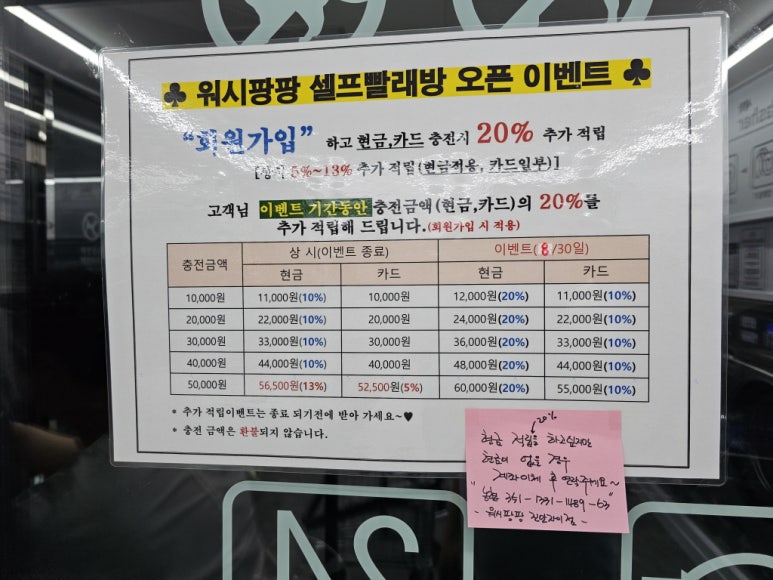 ♣ 워시팡팡 셀프빨래방 오픈 이벤트 ♣
“회원가입” 하고 현금,카드 충전시 20% 추가 적립
5%~13% 추가 적립(현금적용, 카드일부)]
고객님 이벤트 기간동안 충전금액(현금,카드)의 20%를
추가 적립해 드립니다.(회원가입 시 적용)
충전금액 상 시(이벤트 종료) 이벤트(8/30일)
현금 카드 현금 카드
10,000원 11,000원(10%) 10,000원 12,000원(20%) 11,000원(10%)
20,000원 22,000원(10%) 20,000원 24,000원(20%) 22,000원(10%)
30,000원 33,000원(10%) 30,000원 36,000원(20%) 33,000원(10%)
40,000원 44,000원(10%) 40,000원 48,000원(20%) 44,000원(10%)
50,000원 56,500원(13%) 52,500원(5%) 60,000원(20%) 55,000원(10%)
* 추가 적립이벤트는 종료 되기전에 받아 가세요~♥
* 충전 금액은 환불되지 않습니다.
20%
현금 적립을 하고싶지만
현금이 없을 경우
계좌이체 후 연락주세요~
"농협 351-1331-1489-63"
- 워시팡팡 진안자이점 -
24